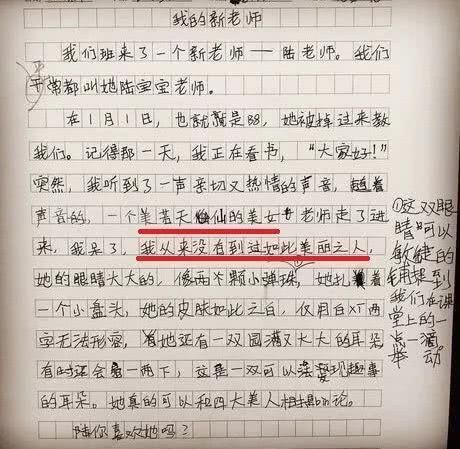 我的新老师
我们班来了一个新老师——陆老师。我们
平常都叫她陆宝宝老师。
在1月1日，也就是88，她被掉过来教
我们。记得那一天，我正在看书，“大家好！”
突然，我听到了一声亲切又热情的声音，随着
声音的，一个美若天仙的美女老师走了进
来，我呆了，我从来没有到过如此美丽之人，
她的眼睛大大的，像两个颗小弹珠，她扎着
一个小盘头，她的皮肤如此之白，仅用白XT两
字无法形容，有她还有一双圆满又大大的耳朵
有时还会一两下，这是一双可以发现趣事
的耳朵。她真的可以和四大美人相提并论。
陆你喜欢她吗？
①这双眼
睛可以
敏捷的
想到
我们在课
堂上的一
点一滴。
举动